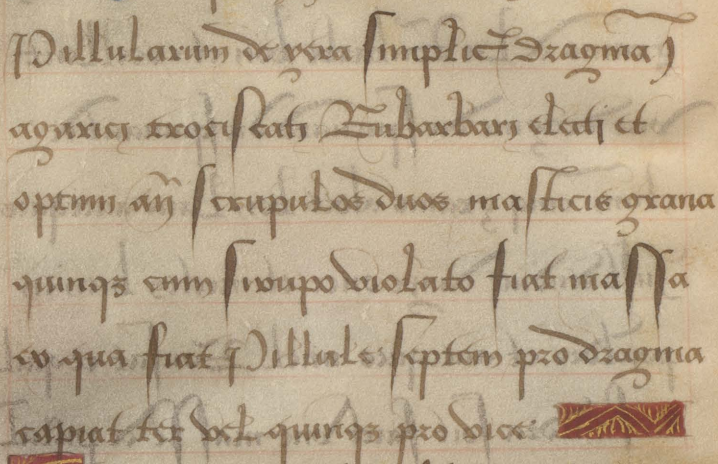 Pillularum de yera simplici dragma j
agarici trociscati Rubarbari electi et
optimi añ scrupulos duos masticis grana
quinqȝ cum sirupo violato fiat massa
ex qua fiat Pillule septem pro dragma
capiat ter vel quinqȝ pro vice